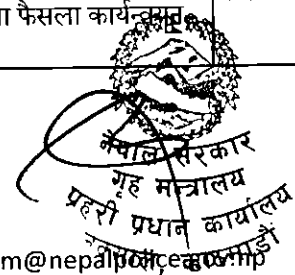 फैसला कार्यन्वयन
नेपाल सरकार
गृह मन्त्रालय
प्रहरी प्रधान कार्यालय
काठमाडौं
m@nepalpolice.gov.np